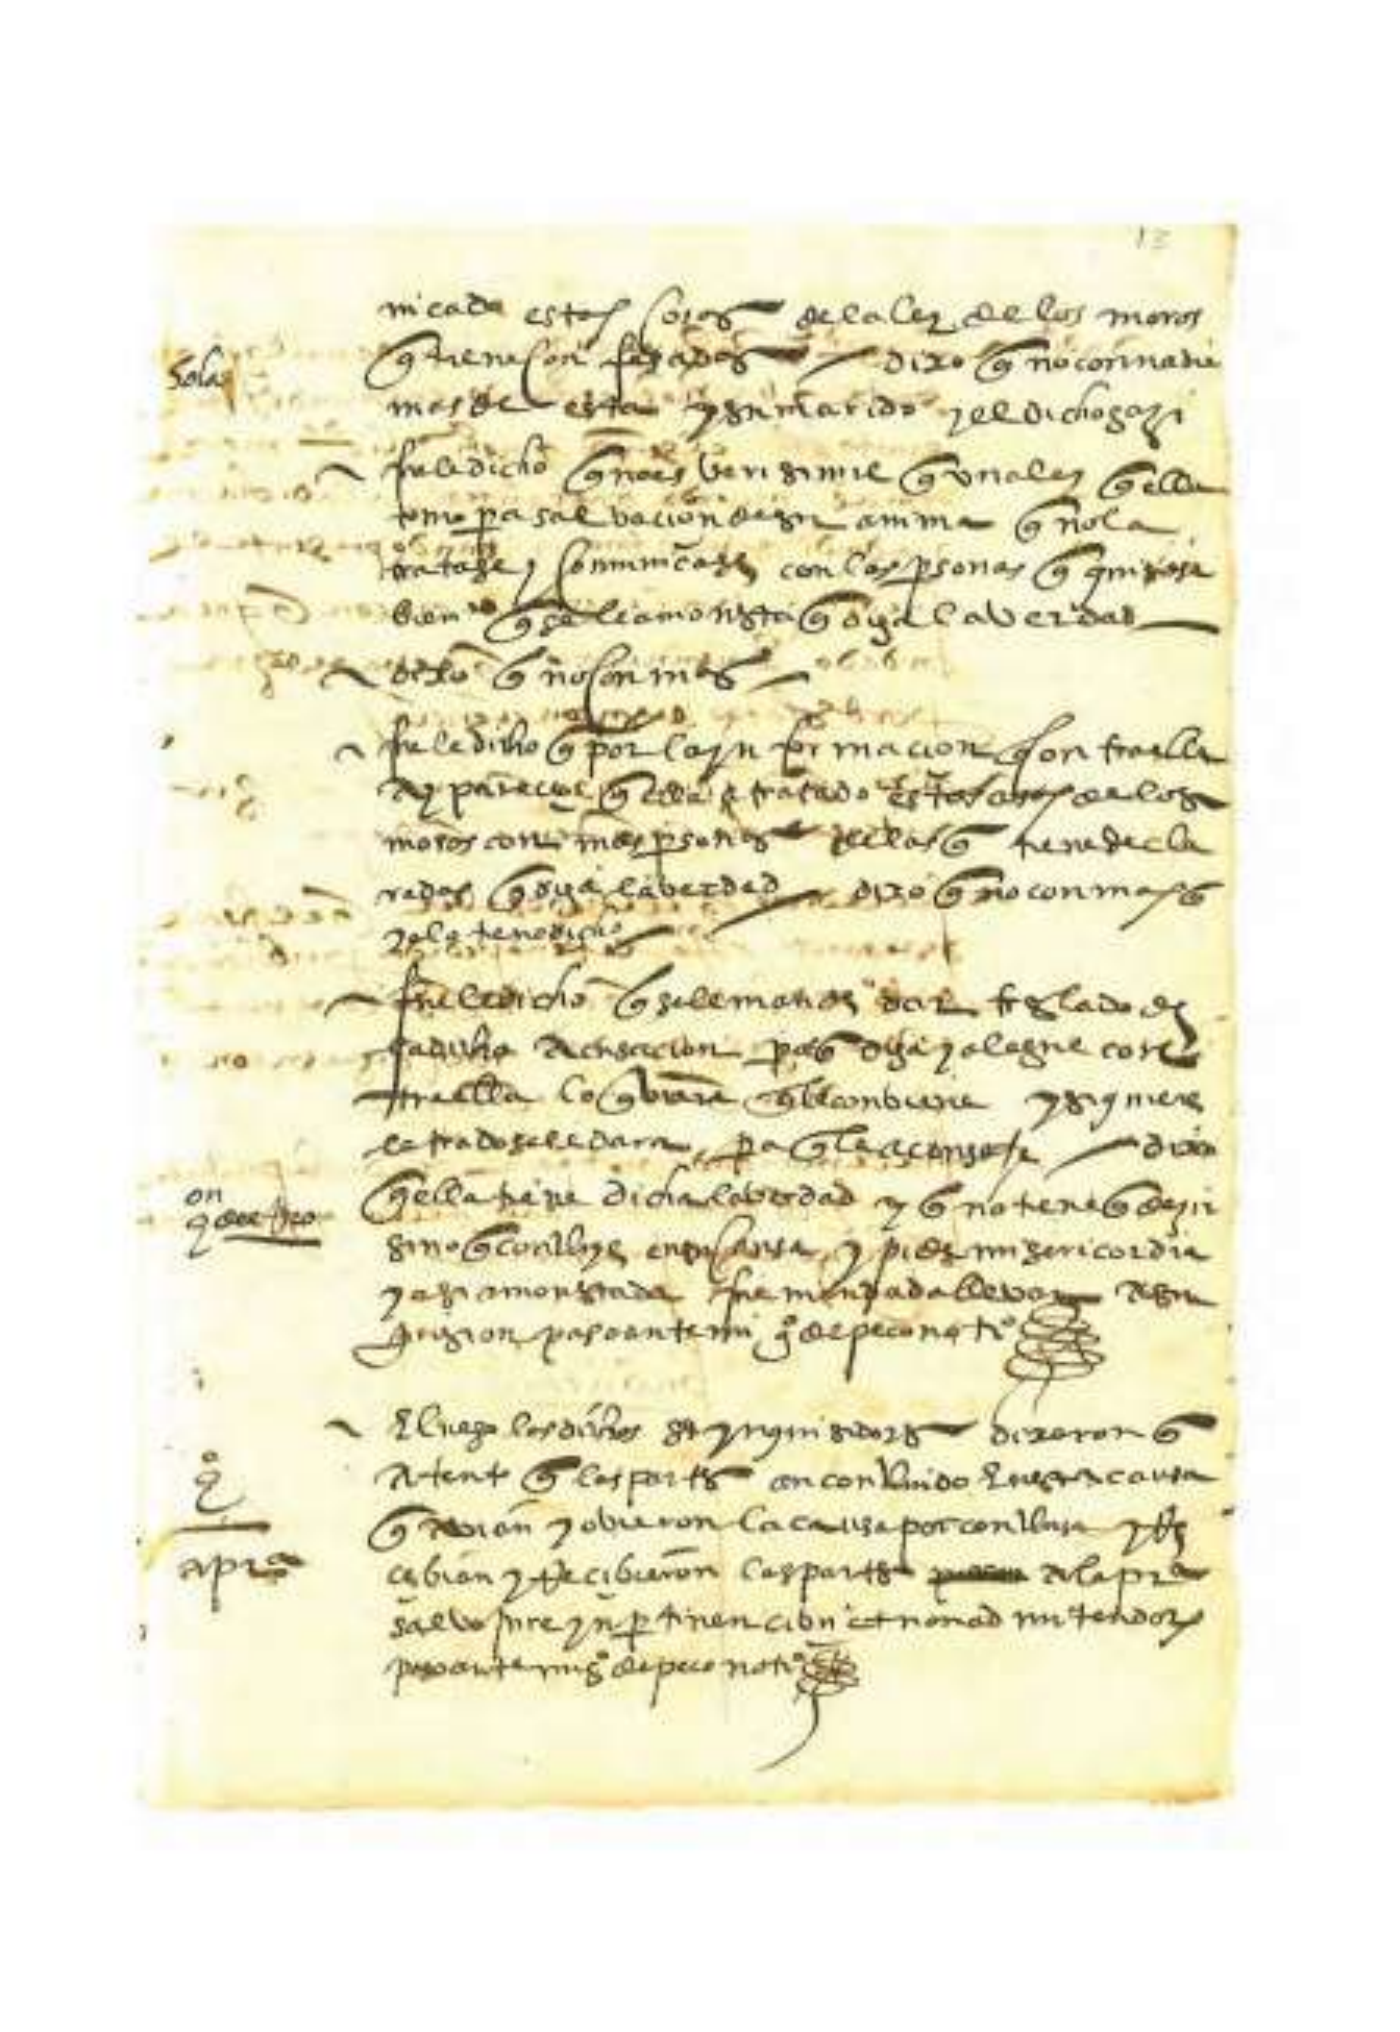 13
nicado estas cosas de la ley de los moros
q tiene confesados dixo q no con nadie
mas de esta y su marido y el dicho gazi
fuele dicho q no es verisimile q una ley q ella
tomo pa salvacion de su anima q no la
tratase y comunicase con las psonas q quisiese
bien q se le amonesta q diga la verdad
dixo q no con mas
fuele dicho q por la ynformacion contra ella
ay parece q ella a tratado estas cosas de los
moros con mas psonas de las q tiene decla
radas q diga la verdad dixo q no con mas q
ya lo tiene dicho
fuele dicho q se le manda dar treslado de
la dicha acusacion pa q diga y alegue con
tra ella lo q viere q le conviene y si quiere
letrado se le dara pa q le aconseje dixo
q ella tiene dicha la verdad y q no tiene q dezir
sino q concluye en su causa y pide misericordia
y asi amonestada fue mandada llevar a su
prision paso ante mi go de peco noto
E luego los dichos ss ynquisidores dixeron q
atento q las partes an concluido en esta causa
q avian y ovieron la causa por conclusa y Re
cebian y Recibieron las partes a la prua
salvo jure ynpertinencium et non admitendorum
paso ante mi go de peco noto
Solas
on
a prua